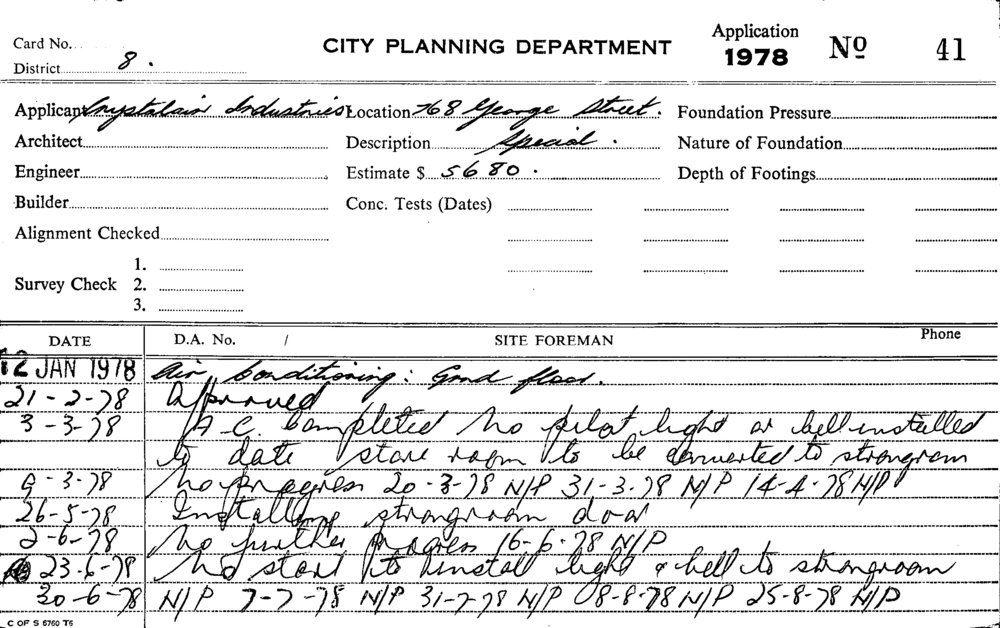 Card No.
CITY PLANNING DEPARTMENT
Application
1978
No 41
District 8.
Applicant Crystalair Industries
Location 768 George Street.
Foundation Pressure
Architect
Description Special.
Nature of Foundation
Engineer
Estimate $ 5680.
Depth of Footings
Builder
Conc. Tests (Dates)
Alignment Checked
Survey Check
1.
2.
3.
DATE D.A. No. / SITE FOREMAN Phone
12 JAN 1978 Air Conditioning: Grnd floor.
21-2-78 Approved
3-3-78 A-C. Completed No pilot light or bell installed
to date store room to be converted to strongroom
9-3-78 No progress 20-3-78 N/P 31-3-78 N/P 14-4-78 N/P
26-5-78 Installing strongroom door
2-6-78 No further progress 16-6-78 N/P
23-6-78 No start to install light & bell to strongroom
30-6-78 N/P 7-7-78 N/P 31-7-78 N/P 8-8-78 N/P 25-8-78 N/P
C OF S 6760 T6